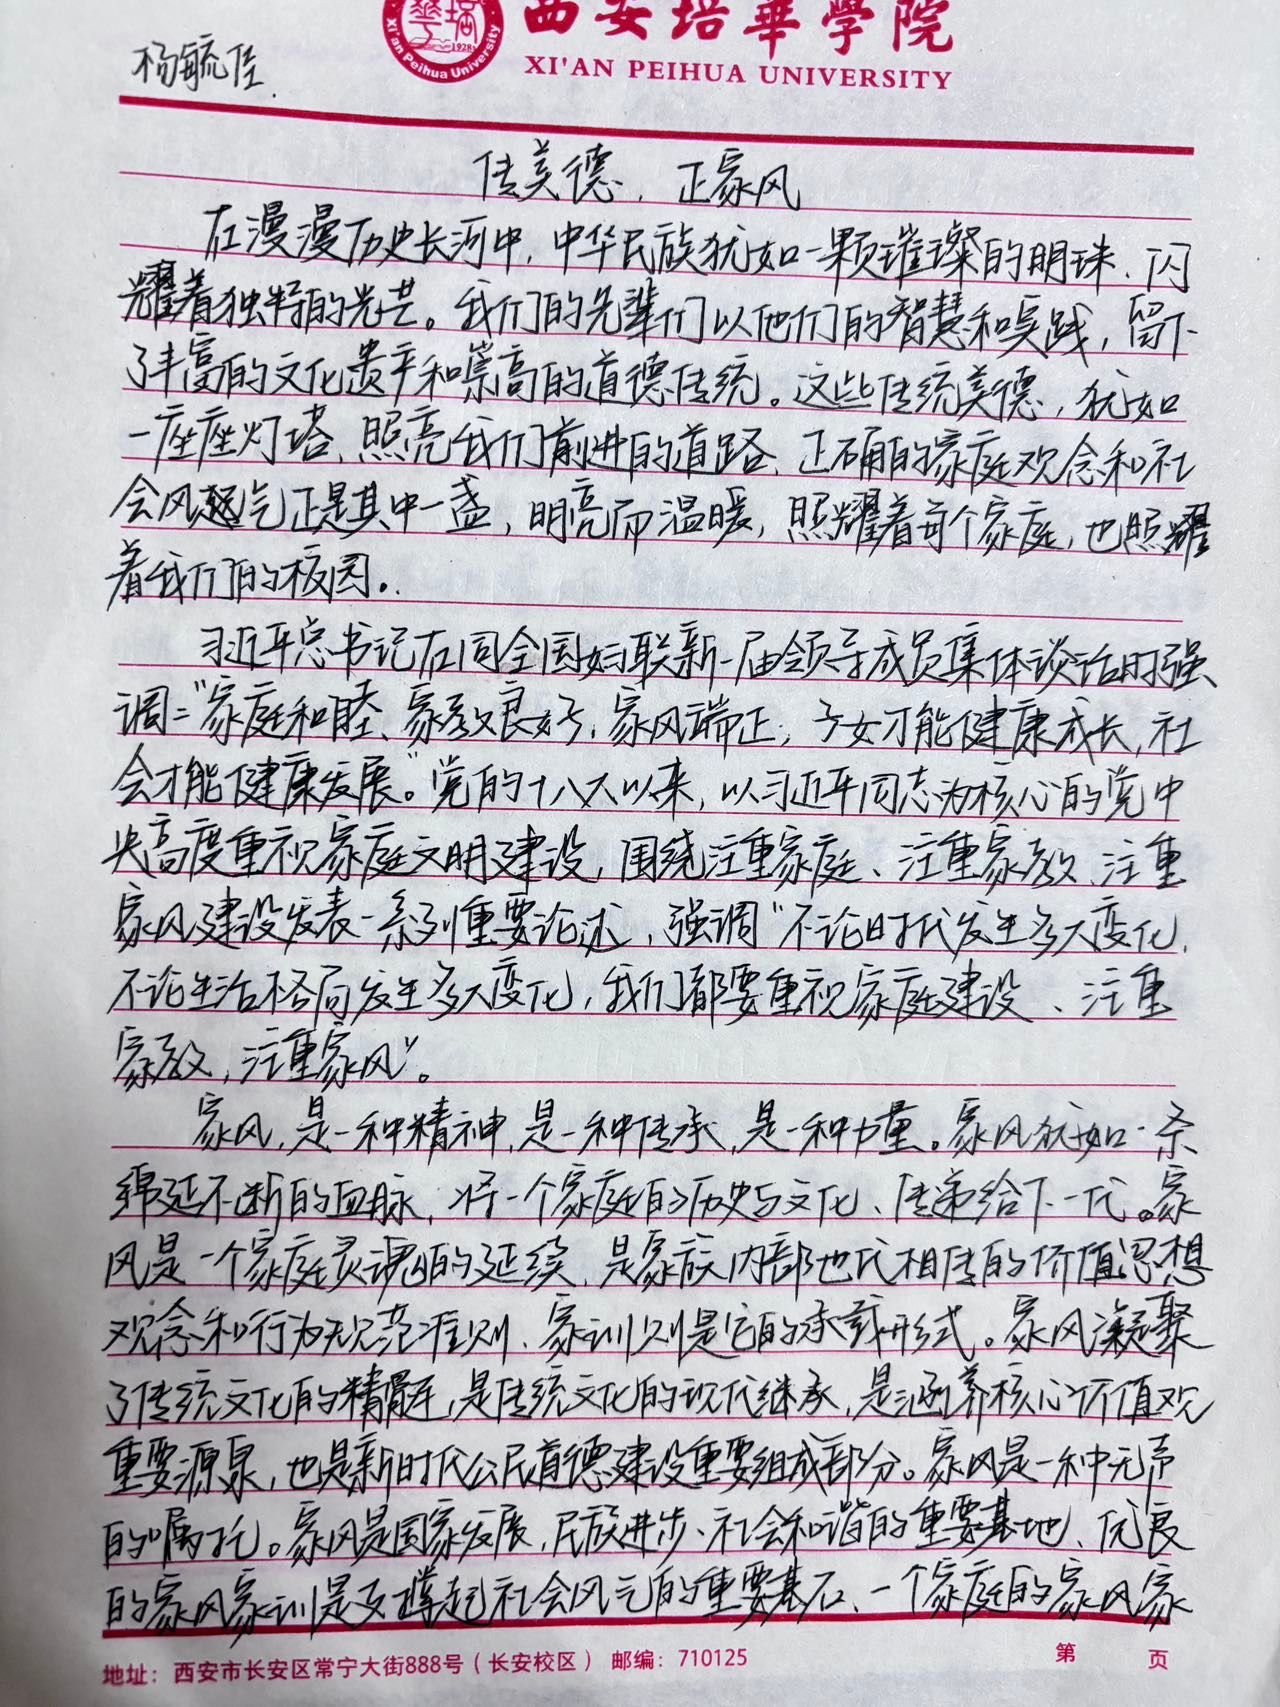 西安培華學院
XI'AN PEIHUA UNIVERSITY
Xi'an Peihua University
1928
杨毓佳
传美德，正家风
在漫漫历史长河中，中华民族犹如一颗璀璨的明珠，闪
耀着独特的光芒。我们的先辈们以他们的智慧和实践，留下
了丰富的文化遗产和崇高的道德传统。这些传统美德，犹如
一座座灯塔，照亮我们前进的道路，正确的家庭观念和社
会风气正是其中一盏，明亮而温暖，照耀着每个家庭，也照耀
着我们的校园。
习近平总书记在同全国妇联新一届领导成员集体谈话时强
调："家庭和睦、家教良好、家风端正，子女才能健康成长，社
会才能健康发展。"党的十八大以来，以习近平同志为核心的党中
央高度重视家庭文明建设，围绕注重家庭、注重家教、注重
家风建设发表一系列重要论述，强调"不论时代发生多大变化，
不论生活格局发生多大变化，我们都要重视家庭建设、注重
家教，注重家风"。
家风，是一种精神，是一种传承，是一种力量。家风犹如一条
绵延不断的血脉，将一个家庭的历史与文化、传递给下一代。家
风是一个家庭灵魂的延续，是家族内部世代相传的价值思想
观念和行为规范准则，家训则是它的承载形式。家风凝聚
了传统文化的精髓，是传统文化的现代继承，是涵养核心价值观
重要源泉，也是新时代公民道德建设重要组成部分。家风是一种无声
的嘱托。家风是国家发展，民族进步、社会和谐的重要基地、优良
的家风家训是支撑起社会风气的重要基石、一个家庭的家风家
地址：西安市长安区常宁大街888号（长安校区） 邮编：710125 第 页